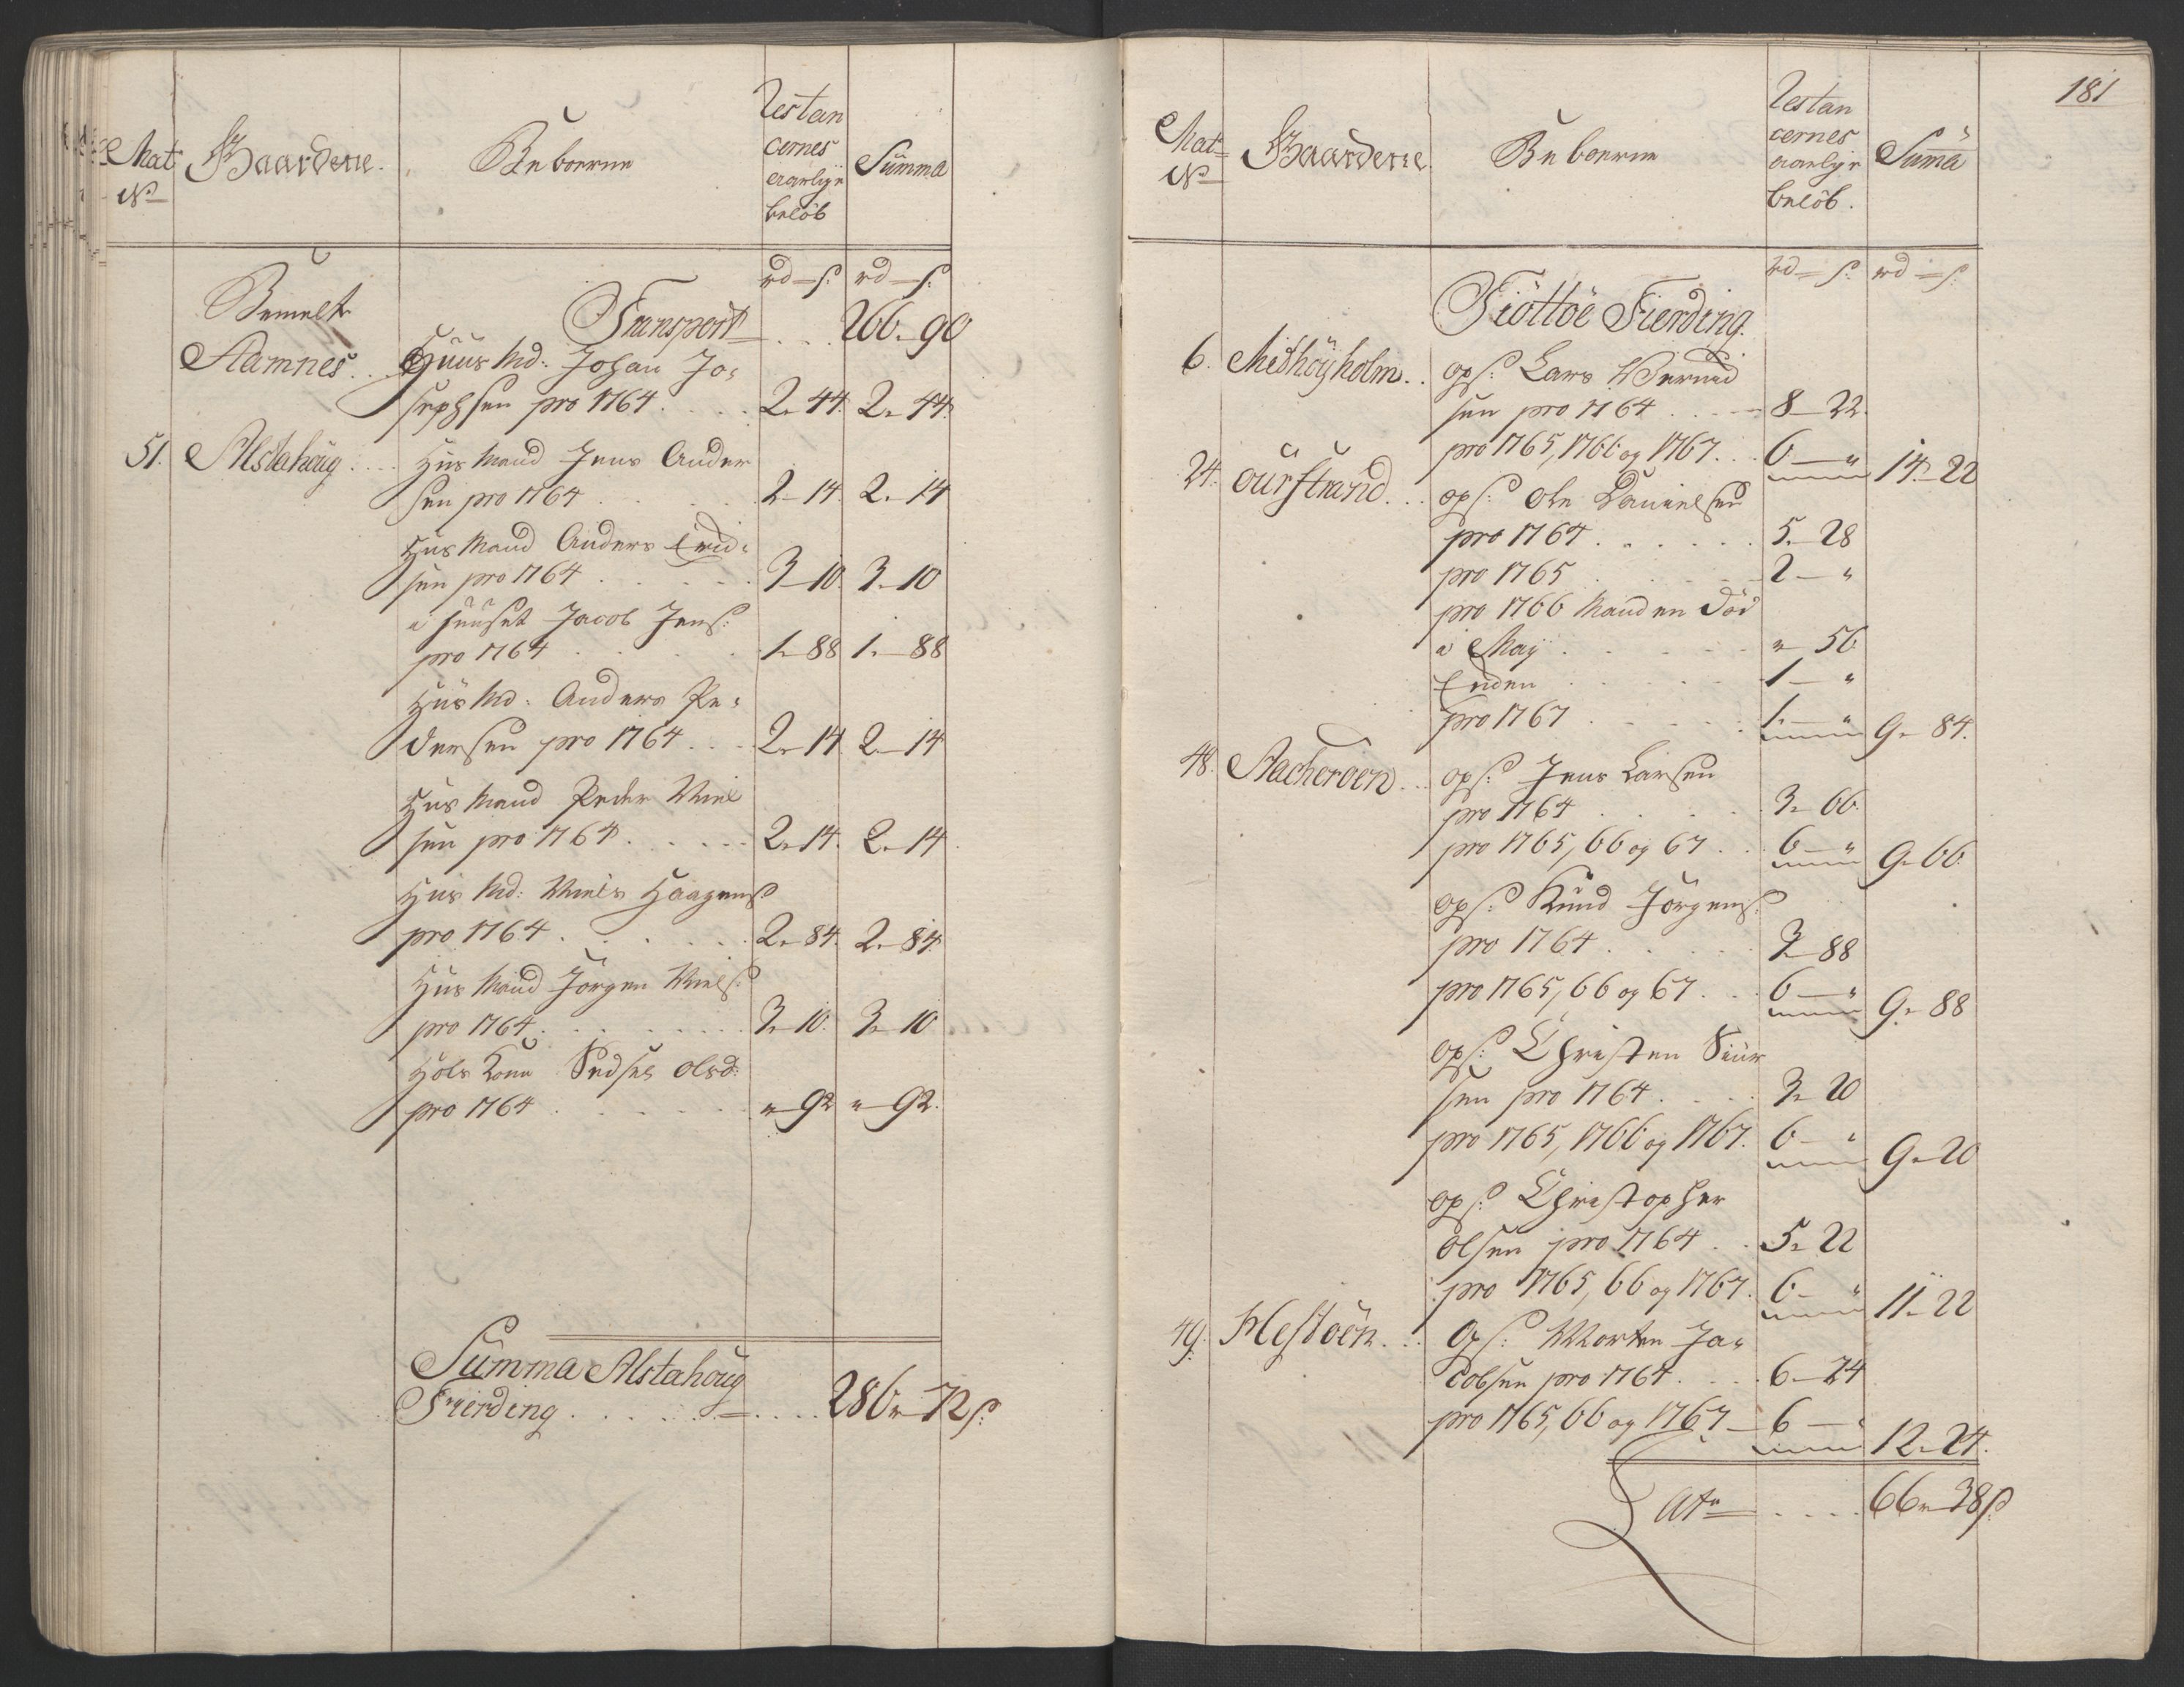 Mat
No
Gaardene.
Beboerne
Restan
cernes
aarlige
beløb
Summa
rd – s: rd – s:
Bemelte
Transport . . . 266 – 90
Aamnes . . Huus Md: Johan Jo-
sephsen pro 1764 . . . . 2 – 44. 2 – 44.
51. Alstahoug . . . . Huus Mand Jens Ander
sen pro 1764 . . . . . 2 – 14. 2 – 14
Huus Mand Anders
sen pro 1764 . . . . . 3 – 10. 3 – 10
Jacob Jens:
pro 1764 . . . . . 1 – 88 1 – 88
Huus Md: Anders Pe-
dersen pro 1764 . . . 2 – 14 2 – 14
Huus Mand Peder Niel
sen pro 1764 . . . . . 2 – 14. 2 – 14
Huus Md: Niels Haagens:
pro 1764 . . . . . . 2 – 84. 2 – 84
Huus Mand Jørgen Niels:
pro 1764 . . . . . . . 3 – 10. 3 – 10
Sidsel Olsd:
pro 1764 . . . . . . " – 92 " – 92.
Summa Alstahoug
Fierding . . . . . . . . . 286 – 72 s:
181
Mat
No
Gaardene.
Beboerne
Restan
cernes
aarlige
beløb.
Summa
rd – s: rd – s:
Tiøttøe Fierding.
6. Midhøyholm . . ops: Lars
sen pro 1764 . . . . 8 – 22.
pro 1765, 1766 og 1767 . . 6 – " 14 – 22
24. Ourstrand . . . ops: Ole Danielsen
pro 1764 . . . . . . . 5 – 28
pro 1765 . . . . . . 2 – "
pro 1766 Manden død
i Maj . . . . . . " – 56
Enken . . . . . 1 – "
pro 1767 . . . . . . 1 – " 9 – 84.
48. Aacherøen . . . ops: Jens Larsen
pro 1764 . . . . . . 3 – 66.
pro 1765, 66 og 67 . . . 6 – " 9 – 66.
ops: Knud Jørgens:
pro 1764 . . . . . 3 – 88
pro 1765, 66 og 67 . . . 6 – " 9 – 88
ops: Christen Siur
sen pro 1764 . . . . 3 – 20
pro 1765, 1766 og 1767. 6 – " 9 – 20
ops: Christopher
Olsen pro 1764 . . . 5 – 22
pro 1765, 66 og 1767. 6 – " 11 – 22
49. Hestøen . . . Ops: Morten Ja-
cobsen pro 1764 . . . . 6 – 24
pro 1765, 66 og 1767 – 6 – " 12 – 24.
. . . . 66 – 38 s: